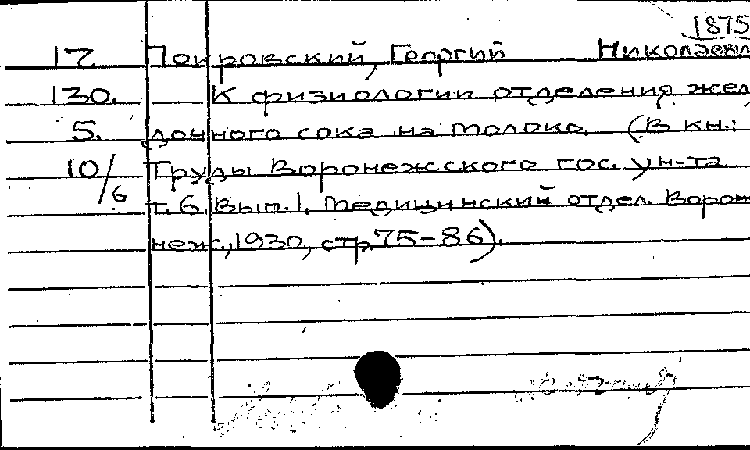 1875
17 Покровский, Георгий Николаеви
130. К физиологии отделения жел
5. дочного сока на молоко. (В кн.:
10/6 Труды Воронежсского гос. ун-та
т. 6 Вып. 1. Медицинский отдел. Ворон
неж, 1930, стр. 75-86).